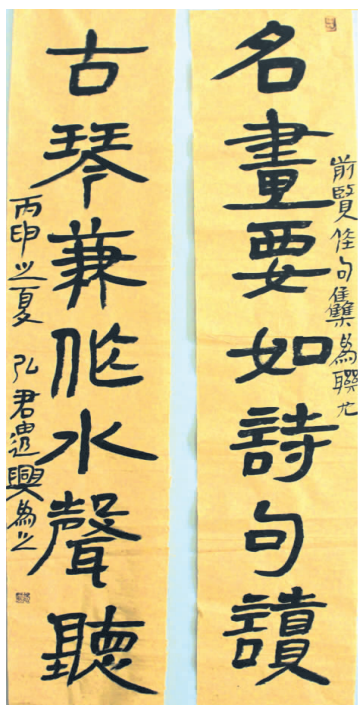 名畫要如詩句讀
前賢佳句集為聯尤
古琴兼作水聲聽
丙申之夏 弘君遣興為之